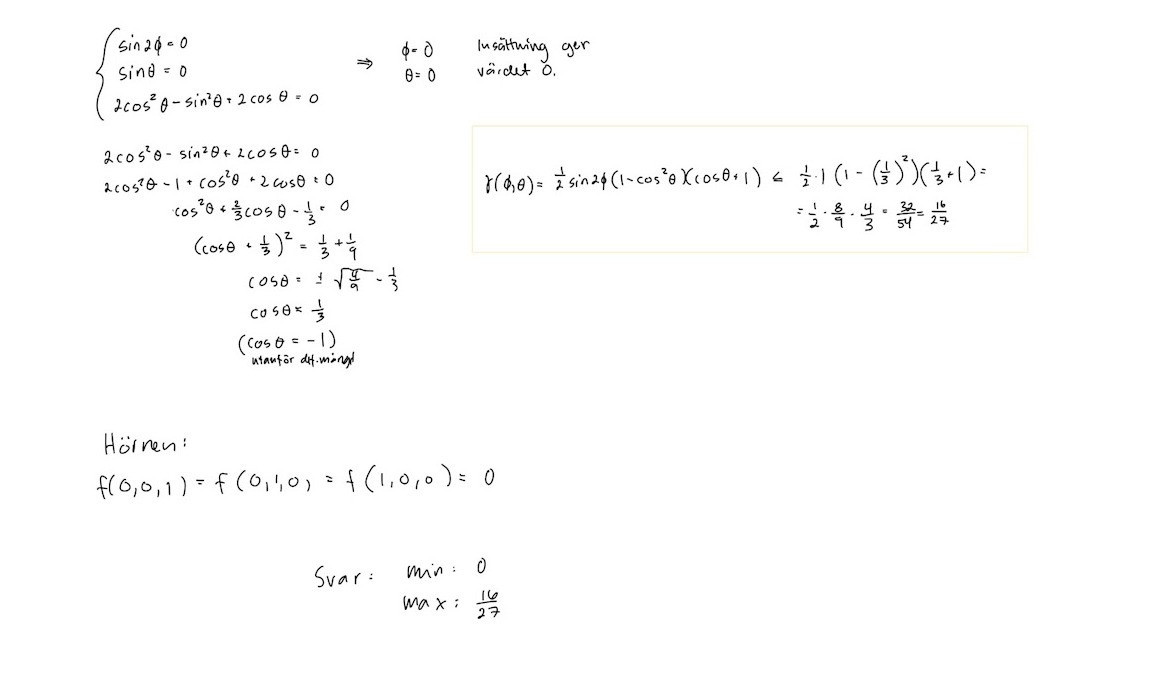 sin2ϕ = 0
sinθ = 0
2cos²θ - sin²θ + 2cosθ = 0
⇒ ϕ = 0
θ = 0
Insättning ger
värdet 0.
2cos²θ - sin²θ + 2cosθ = 0
2cos²θ - 1 + cos²θ + 2cosθ = 0
cos²θ + 2/3 cosθ - 1/3 = 0
(cosθ + 1/3)² = 1/3 + 1/9
cosθ = ± √4/9 - 1/3
cosθ = 1/3
(cosθ = -1)
utanför def.mängd
γ(ϕ,θ) = 1/2 sin2ϕ(1-cos²θ)(cosθ+1) ≤ 1/2 · 1 (1 - (1/3)²)(1/3 + 1) =
= 1/2 · 8/9 · 4/3 = 32/54 = 16/27
Hörnen:
f(0,0,1) = f(0,1,0) = f(1,0,0) = 0
Svar: min: 0
max: 16/27